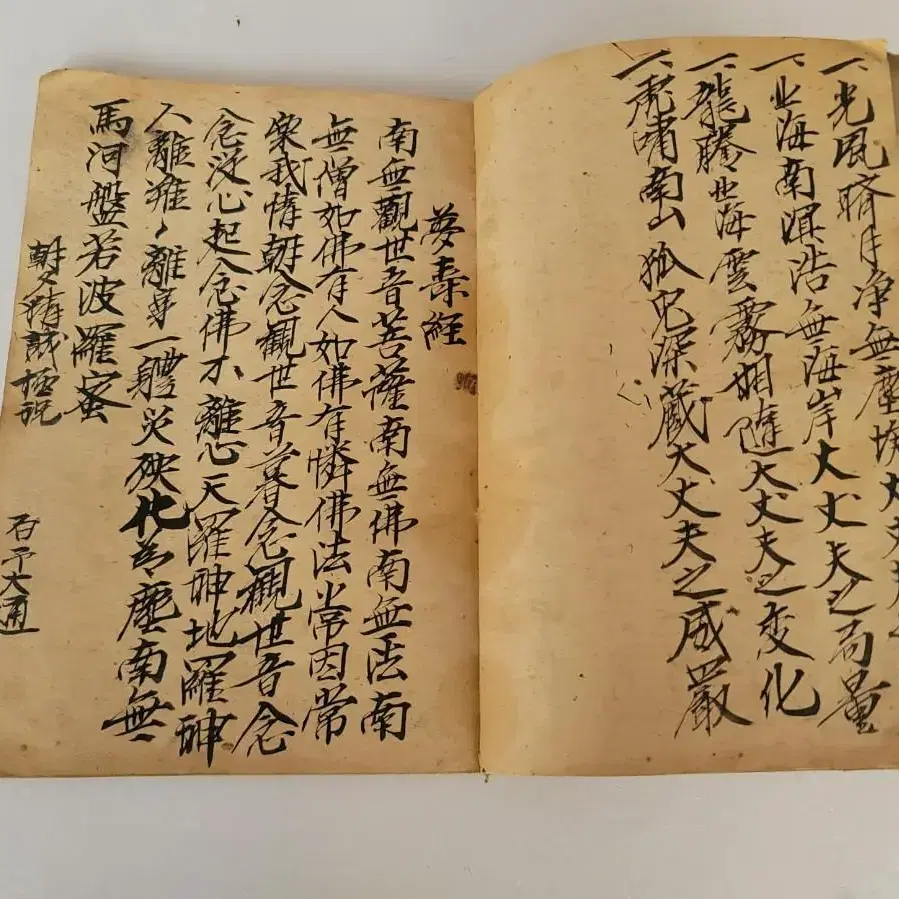 一、光風霽月净無塵埃大丈夫之
一、北海南溟浩無海岸大丈夫之局量
一、龍騰北海雲霧相隨大丈夫之变化
一、虎嘯南山狐兒深藏大丈夫之威嚴
夢壽經
南無觀世音菩薩南無佛南無法南
無僧如佛有人如佛有憐佛法常因常
樂我情朝念觀世音暮念觀世音念
念從心起念佛不離心天羅神地羅神
人離难〻離身一體災殃化為塵南無
馬河盤若波羅蜜
朝〻精誠極說
百予大通